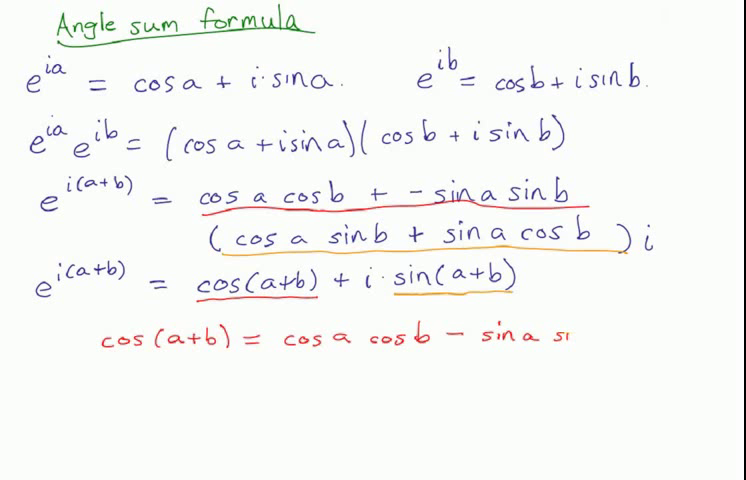 Angle sum formula
e^{ia} = cos a + i · sin a. e^{ib} = cos b + i sin b.
e^{ia} e^{ib} = (cos a + i sin a)(cos b + i sin b)
e^{i(a+b)} = cos a cos b + - sin a sin b
(cos a sin b + sin a cos b) i
e^{i(a+b)} = cos(a+b) + i · sin(a+b)
cos(a+b) = cos a cos b - sin a si